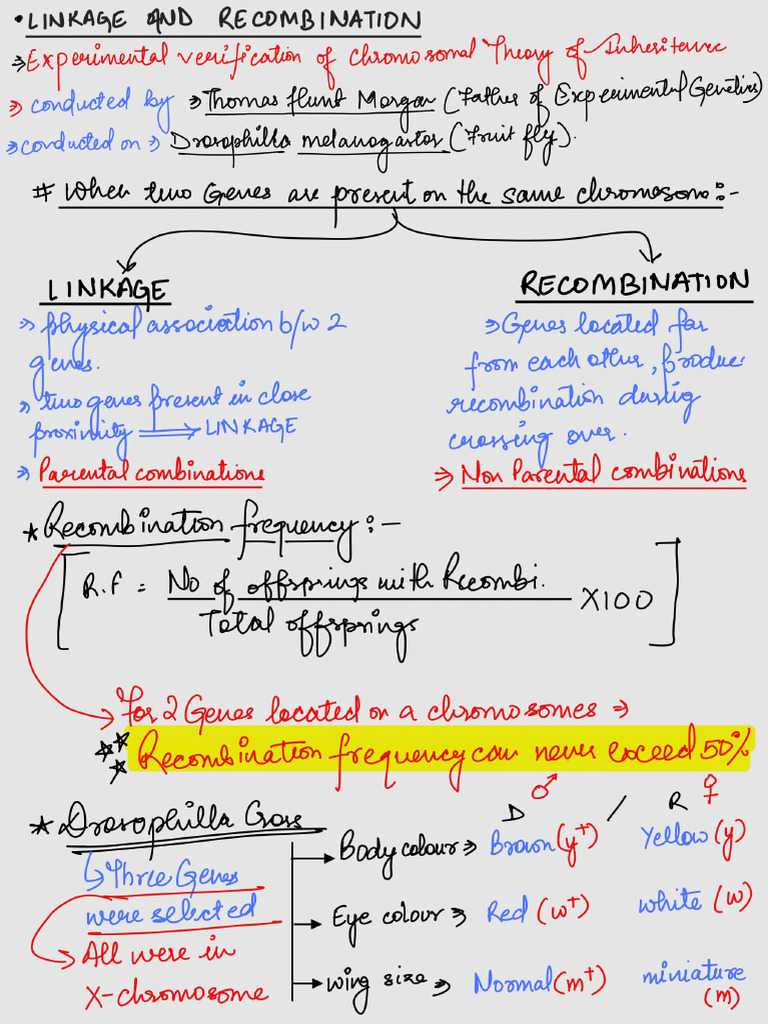 • LINKAGE AND RECOMBINATION
⇒ Experimental verification of Chromosomal Theory of Inheritence
⇒ conducted by ⇒ Thomas Hunt Morgan (Father of Experimental Genetics)
⇒ conducted on ⇒ Drosophilla melanogastor (Fruit fly).
# When two Genes are present on the same chromosome:-
LINKAGE
⇒ Physical association b/w 2
genes.
⇒ two genes present in close
proximity ⟹ LINKAGE
⇒ Parental combinations
RECOMBINATION
⇒ Genes located far
from each other, produce
recombination during
crossing over.
⇒ Non Parental combinations
* Recombination frequency:-
R.F = No of offsprings with Recombi. / Total offsprings X100
For 2 Genes located on a chromosomes ⇒
Recombination frequency can never exceed 50%
D ♂ / R ♀
* Drosophilla Cross
Three Genes
were selected
All were in
X-chromosome
Body colour ⇒ Brown (y+) Yellow (y)
Eye colour ⇒ Red (w+) white (w)
wing size ⇒ Normal (m+) miniature (m)